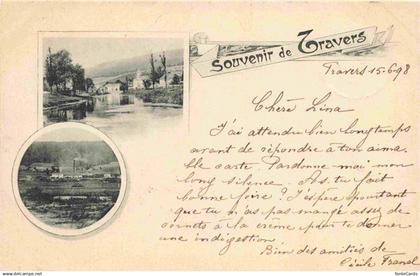 Souvenir de Travers
Travers 15.6.98
Chère Lina
J'ai attendu bien longtemps
avant de répondre à ton aima-
ble carte. Pardonne-moi mon
long silence. As-tu fait
bonne foire? J'espère pourtant
que tu n'as pas mangé assez de
cornets à la crème pour te donner
une indigestion.
Bien des amitiés de
Cécile
delcampe.net